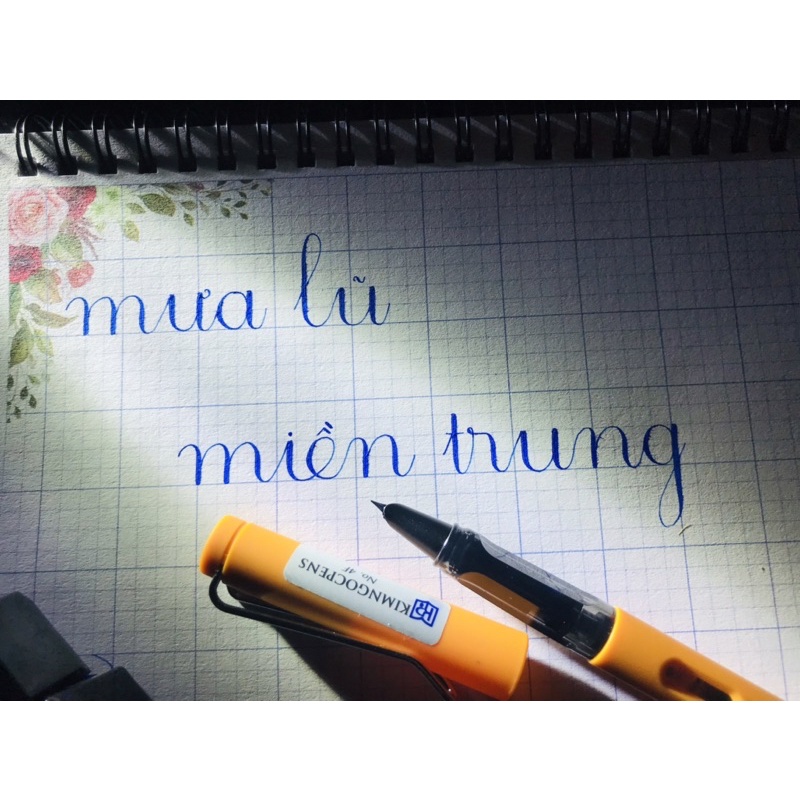 mưa lũ
miền trung
KIMNGOCPENS
No. 4F